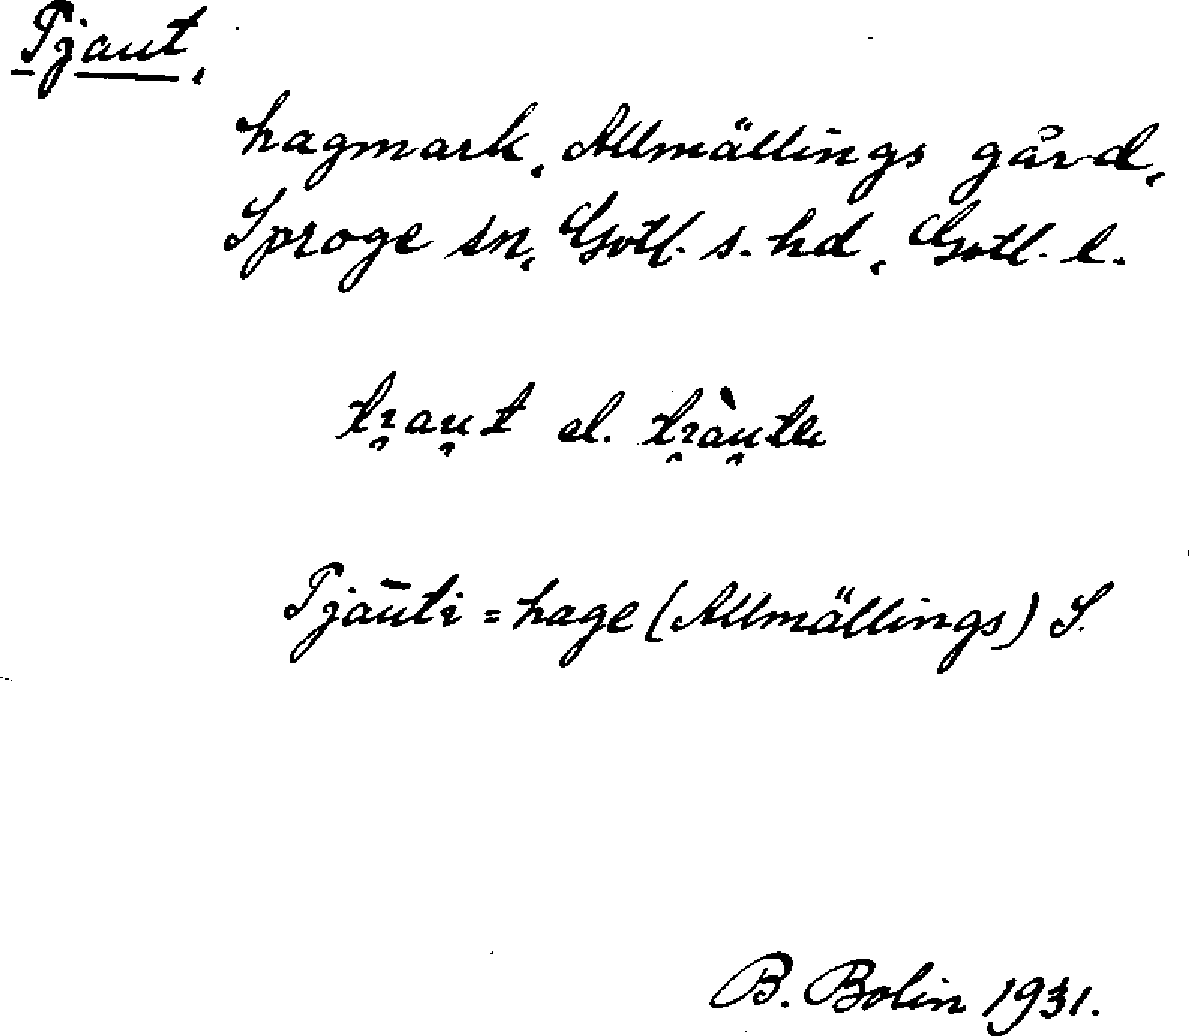 Tjaut,
hagmark, Allmällings gård,
Sproge sn, Gotl. s. hd, Gotl. l.
ti̯au̯t el.
Tjaūti = hage (Allmällings) S.
B. Bolin 1931.